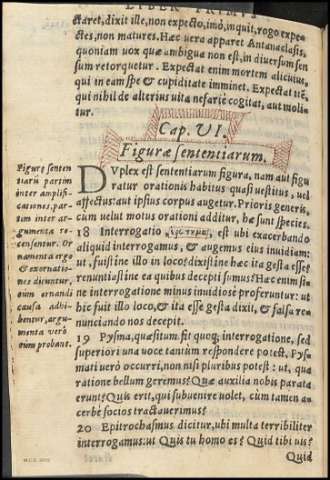 LIBER PRIMVS
ctaret, dixit ille, non expecto, imò, inquit, rogo expe-
ctes, non matures. Hæc uera apparet Antanaclasis,
quoniam uox quæ ambigua non est, in diuersum sen
sum retorquetur. Expectat enim mortem alicuius,
qui in eam spe & cupiditate imminet. Expectat itē,
qui nihil de alterius uita nefariè cogitat, aut moli-
tur.
Cap. VI.
Figuræ sententiarum.
Figuræ senten
tiarũ partim
inter amplifi-
cationes, par-
tim inter ar-
gumenta re-
censentur. Or
namenta ergo
& exornatio-
nes dicuntur,
cùm ornandi
causa adhi-
bentur, argu-
menta verò
cùm probant.
DVplex est sententiarum figura, nam aut figu
ratur orationis habitus quasi uestitus, uel
affectus: aut ipsius corpus augetur. Prioris generis,
cùm uelut motus orationi additur, hæ sunt species.
18 Interrogatio, est ubi exacerbando
aliquid interrogamus, & augemus eius inuidiam:
ut, fuistine illo in loco? dixistine hæc ita gesta esse?
renuntiastine ea quibus decepti sumus? Hæc enim si
ne interrogatione minus inuidiosè proferuntur: ut
hic fuit illo loco, & ita esse gesta dixit, & falsa re-
nunciando nos decepit.
19 Pysma, quæsitum fit quoq; interrogatione, sed
superiori una uoce tantùm respondere potest, Pys-
mati uerò occurri, non nisi pluribus potest: ut, qua
ratione bellum geremus? Quæ auxilia nobis parata
erunt? Quis erit, qui subuenire uolet, cùm tamen a-
cerbè socios tractauerimus?
20 Epitrochasmus dicitur, ubi multa terribiliter
interrogamus: ut Quis tu homo es? Quid tibi uis?
Quid